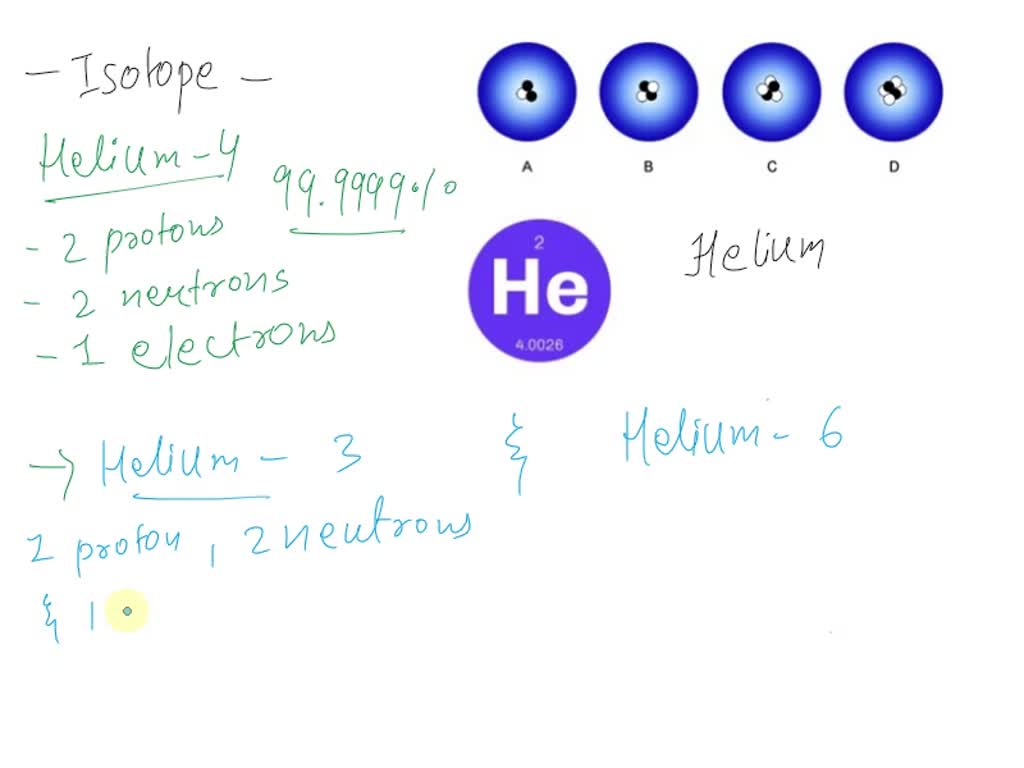 - Isotope -
A B C D
Helium-4
99.9999%
- 2 protons
- 2 neutrons
- 1 electrons
2
He
4.0026
Helium
→ Helium - 3 & Helium - 6
1 proton, 2 neutrons
& 1